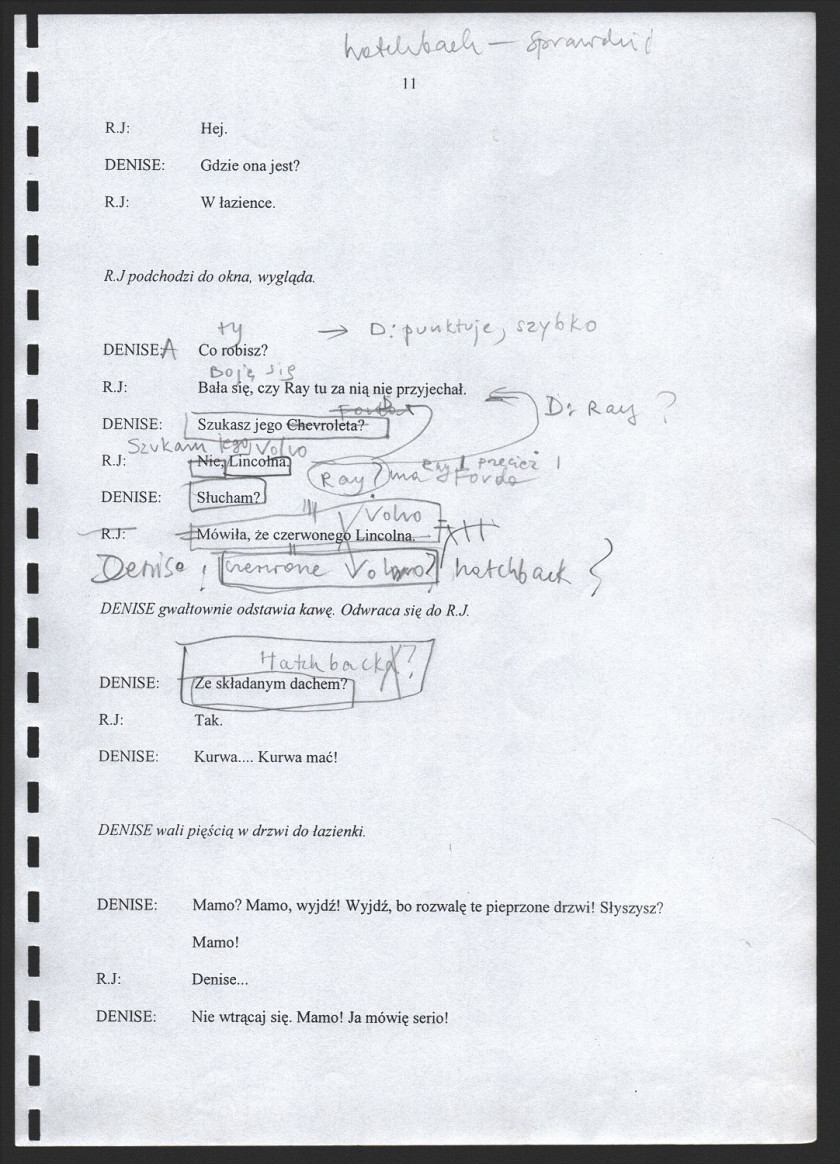 hatchback — sprawdzić
11
R.J: Hej.
DENISE: Gdzie ona jest?
R.J: W łazience.
R.J podchodzi do okna, wygląda.
ty → D: punktuje, szybko
DENISE: A Co robisz?
Boję się
R.J: Bała się, czy Ray tu za nią nie przyjechał.
Forda D: Ray ?
DENISE: Szukasz jego Chevroleta?
Szukam jego Volvo
R.J: Nie, Lincolna.
Ray? ma przecież Forda
DENISE: Słucham?
Volvo
R.J: Mówiła, że czerwonego Lincolna.
Denise: czerwone Volvo? hatchback
DENISE gwałtownie odstawia kawę. Odwraca się do R.J.
Hatchback?
DENISE: Ze składanym dachem?
R.J: Tak.
DENISE: Kurwa.... Kurwa mać!
DENISE wali pięścią w drzwi do łazienki.
DENISE: Mamo? Mamo, wyjdź! Wyjdź, bo rozwalę te pieprzone drzwi! Słyszysz?
Mamo!
R.J: Denise...
DENISE: Nie wtrącaj się. Mamo! Ja mówię serio!